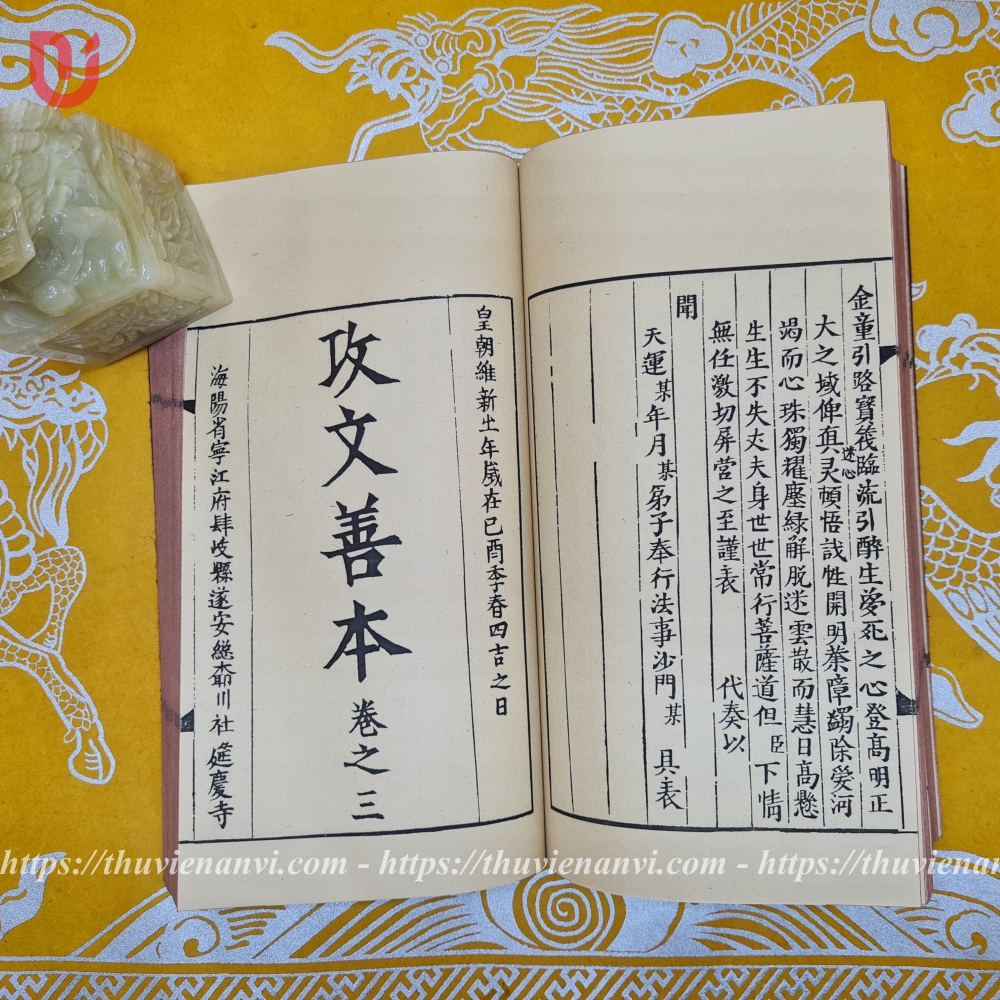 金童引路寶筏臨流引醉生夢死之心登高明正
大之域俾真灵頓悟戝牲開明業障蠲除愛河
迷心
渴而心珠獨耀塵緑解脱迷雲散而慧日高懸
生生不失丈夫身世世常行菩薩道但臣下情
無任激切屏营之至謹表 代奏以
聞
天運某年月某弟子奉行法事沙門某 具表
皇朝維新 年歲在己酉季春四吉之日
攻文善本 卷之三
海陽省寧江府肆岐縣遂安總 川社 慶寺
https://thuvienanvi.com - https://thuvienanvi.com - https://thuviena